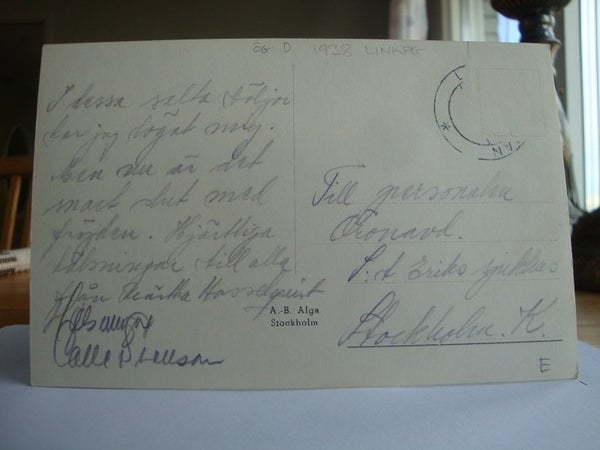 ÖG D 1938 LINKPG
I dessa salta böljor
har jag dögat mig.
Men nu är det
snart slut med
fröjden. Hjärtliga
hälsningar till alla
från Märtha Hasselquist
Till personalen
Öronavd.
S:t Eriks sjukhus
Stockholm. K.
A.-B. Alga
Stockholm
E